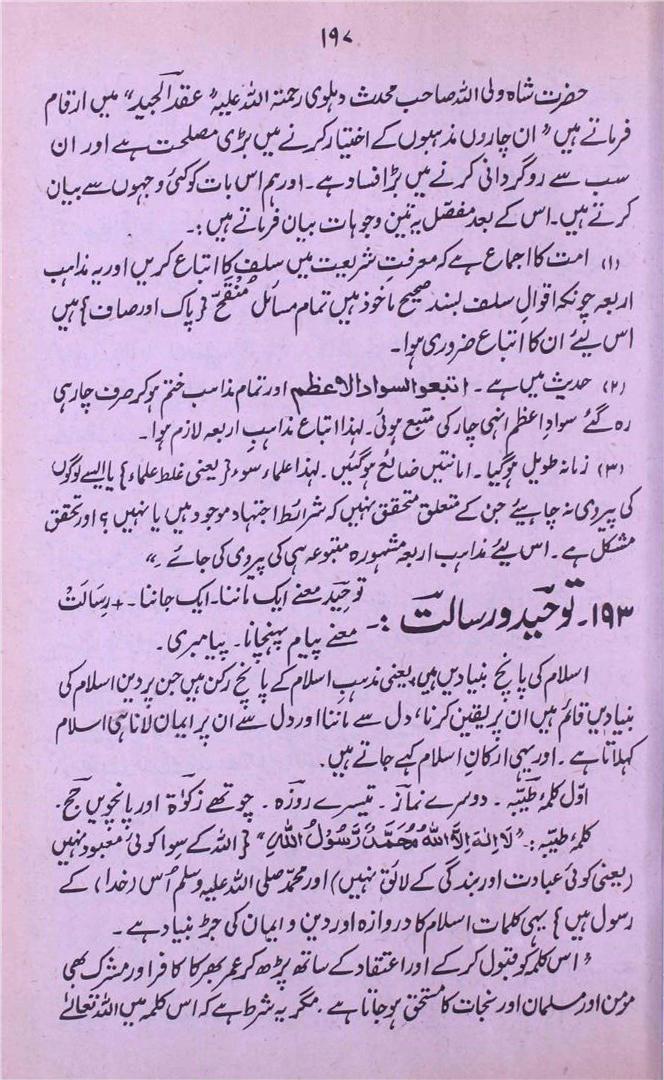 ۱۹۷
حضرت شاہ ولی اللہ صاحب محدث دہلوی رحمۃ اللہ علیہ "عقد الجید" میں ارقام
فرماتے ہیں "ان چاروں مذہبوں کے اختیار کرنے میں بڑی مصلحت ہے اور ان
سب سے روگردانی کرنے میں بڑا فساد ہے۔ اور ہم اس بات کو کئی وجہوں سے بیان
کرتے ہیں۔ اس کے بعد مفصل یہ تین وجوہات بیان فرماتے ہیں :۔
(۱) امت کا اجماع ہے کہ معرفتِ شریعت میں سلف کا اتباع کریں اور یہ مذاہب
اربعہ چونکہ اقوالِ سلف بسند صحیح ماخوذ ہیں تمام مسائل مُنَقَّح {پاک اور صاف} ہیں
اس لیئے ان کا اتباع ضروری ہوا۔
(۲) حدیث میں ہے۔ اتبعوا السواد الاعظم اور تمام مذاہب ختم ہو کر صرف چار ہی
رہ گئے سوادِ اعظم انہی چار کی متبع ہوئی۔ لہذا اتباع مذاہبِ اربعہ لازم ہوا۔
(۳) زمانہ طویل ہو گیا۔ امانتیں ضائع ہو گئیں۔ لہذا علماء سوء {یعنی غلط علماء} یا ایسے لوگوں
کی پیروی نہ چاہیئے جن کے متعلق متحقق نہیں کہ شرائط اجتہاد موجود ہیں یا نہیں ؟ اور تحقق
مشکل ہے۔ اس لیئے مذاہب اربعہ مشہورہ متبوعہ ہی کی پیروی کی جائے۔"
۱۹۳۔ توحید و رسالت :۔ توحید معنے ایک ماننا۔ ایک جاننا۔ + رسالت
معنے پیام پہنچانا۔ پیامبری۔
اسلام کی پانچ بنیادیں ہیں یعنی مذہبِ اسلام کے پانچ رکن ہیں جن پر دین اسلام کی
بنیادیں قائم ہیں ان پر یقین کرنا، دل سے ماننا اور دل سے ان پر ایمان لانا ہی اسلام
کہلاتا ہے۔ اور یہی ارکانِ اسلام کہے جاتے ہیں۔
اوّل کلمۂ طیّبہ۔ دوسرے نماز۔ تیسرے روزہ۔ چوتھے زکوٰۃ اور پانچویں حج۔
کلمۂ طیّبہ :۔ "لَا اِلٰہَ اِلَّا اللّٰہُ مُحَمَّدٌ رَّسُوْلُ اللّٰہِ" {اللہ کے سوا کوئی معبود نہیں
(یعنی کوئی عبادت اور بندگی کے لائق نہیں) اور محمد صلی اللہ علیہ وسلم اُس (خدا) کے
رسول ہیں} یہی کلمات اسلام کا دروازہ اور دین و ایمان کی جڑ بنیاد ہے۔
"اس کلمہ کو قبول کر کے اور اعتقاد کے ساتھ پڑھ کر عمر بھر کا کافر اور مشرک بھی
مؤمن اور مسلمان اور نجات کا مستحق ہو جاتا ہے۔ مگر یہ شرط ہے کہ اس کلمہ میں اللہ تعالیٰ